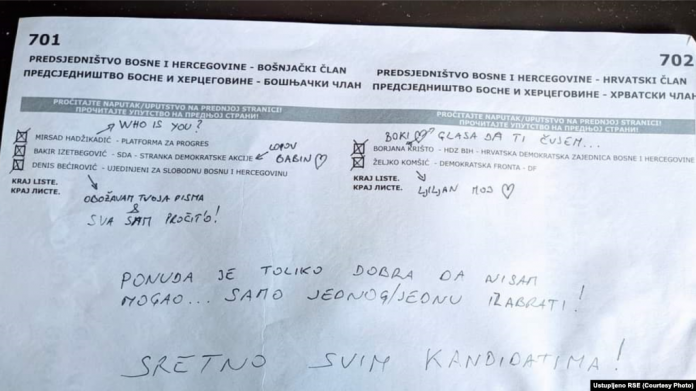 701
PREDSJEDNIŠTVO BOSNE I HERCEGOVINE - BOŠNJAČKI ČLAN
ПРЕДСЈЕДНИШТВО БОСНЕ И ХЕРЦЕГОВИНЕ - БОШЊАЧКИ ЧЛАН
PROČITAJTE NAPUTAK/UPUTSTVO NA PREDNJOJ STRANICI!
ПРОЧИТАЈТЕ УПУТСТВО НА ПРЕДЊОЈ СТРАНИ!
WHO IS YOU?
MIRSAD HADŽIKADIĆ - PLATFORMA ZA PROGRES
BAKIR IZETBEGOVIĆ - SDA - STRANKA DEMOKRATSKE AKCIJE
BABIN ♡
DENIS BEĆIROVIĆ - UJEDINJENI ZA SLOBODNU BOSNU I HERCEGOVINU
KRAJ LISTE.
КРАЈ ЛИСТЕ.
OBOŽAVAM TVOJA PISMA
&
SVA SAM PROČIT'O!
702
PREDSJEDNIŠTVO BOSNE I HERCEGOVINE - HRVATSKI ČLAN
ПРЕДСЈЕДНИШТВО БОСНЕ И ХЕРЦЕГОВИНЕ - ХРВАТСКИ ЧЛАН
PROČITAJTE NAPUTAK/UPUTSTVO NA PREDNJOJ STRANICI!
ПРОЧИТАЈТЕ УПУТСТВО НА ПРЕДЊОЈ СТРАНИ!
BOKI ♡ GLASA DA TI ČUJEM...
BORJANA KRIŠTO - HDZ BIH - HRVATSKA DEMOKRATSKA ZAJEDNICA BOSNE I HERCEGOVINE
ŽELJKO KOMŠIĆ - DEMOKRATSKA FRONTA - DF
KRAJ LISTE.
КРАЈ ЛИСТЕ.
LJILJAN MOJ ♡
PONUDA JE TOLIKO DOBRA DA NISAM
MOGAO... SAMO JEDNOG/JEDNU IZABRATI!
SRETNO SVIM KANDIDATIMA!
Ustupljeno RSE (Courtesy Photo)